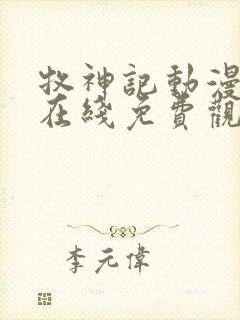 牧神記動漫
在綫免費觀
李元偉